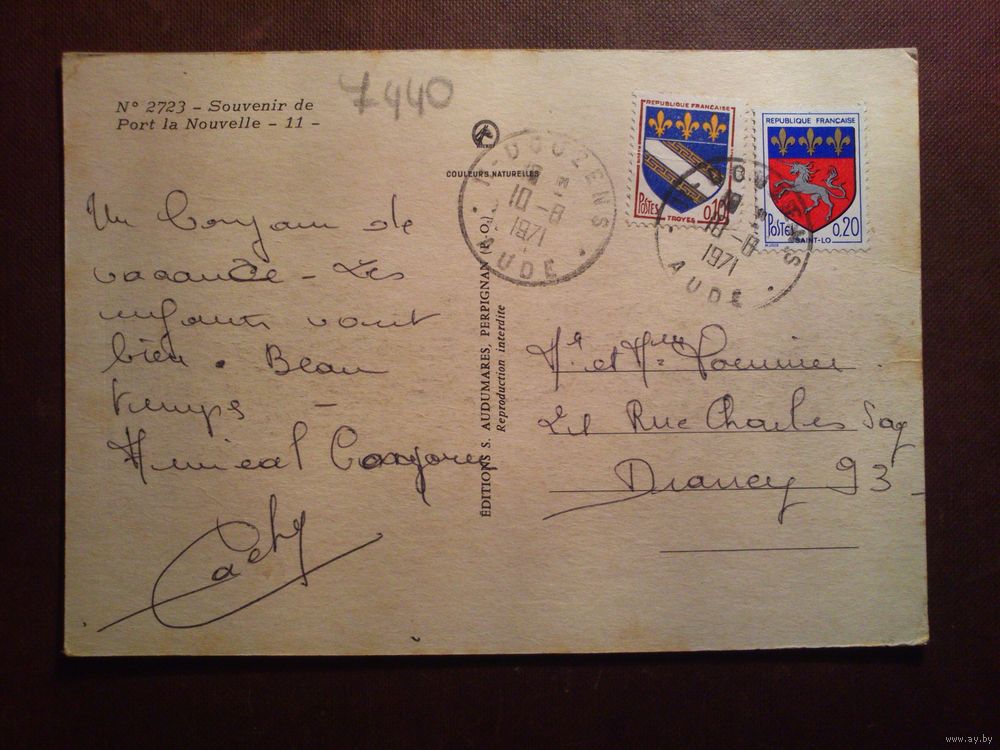 N° 2723 - Souvenir de
Port la Nouvelle - 11 -
7440
COULEURS NATURELLES
Un bonjour de
vacance - Les
enfants vont
bien. Beau
temps -
Amical Bonjour
Cathy
ÉDITIONS S. AUDUMARES, PERPIGNAN (P.-O.)
Reproduction interdite
11-DOUZENS
10-8
1971
AUDE
REPUBLIQUE FRANÇAISE
POSTES
0,10
TROYES
REPUBLIQUE FRANÇAISE
POSTES
0,20
SAINT-LO
10-8
1971
AUDE
Mr et Mme
Rue Charles Sag
Drancy 93
www.ay.by